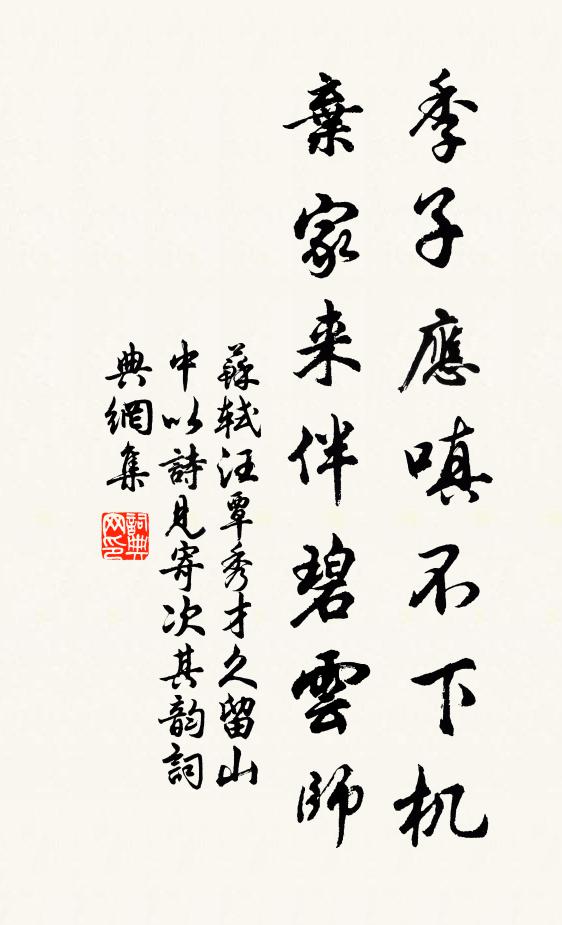 季子應嗔不下机
棄家来伴碧雲師
蘇軾汪覃秀才久留山
中以詩見寄次其韵詞
典網集
詞典
网印